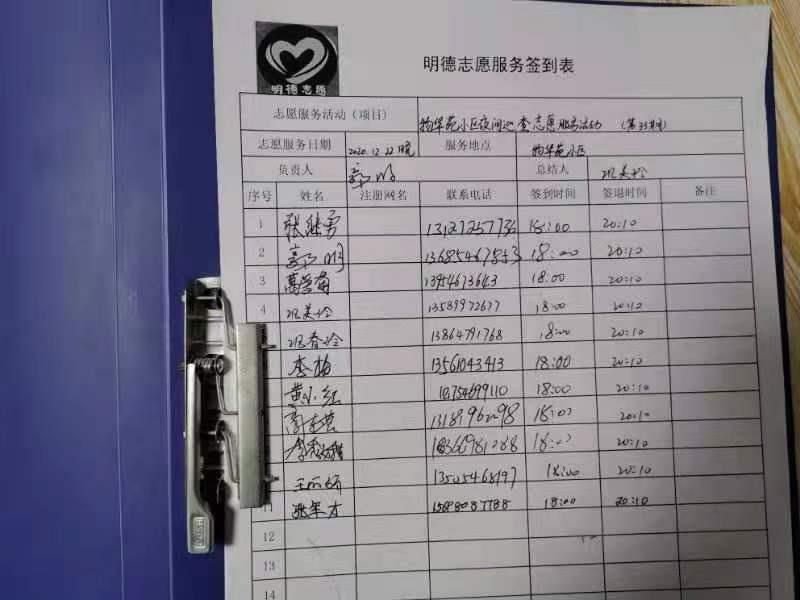 明德志愿
明德志愿服务签到表
志愿服务活动（项目） 物华苑小区夜间巡查志愿服务活动 （第33期）
志愿服务日期 2020.12.22晚 服务地点 物华苑小区
负责人 郭明 总结人 巩美玲
序号 姓名 注册网名 联系电话 签到时间 签退时间 备注
1 张继勇 18:00 20:10
2 郭明 13685467553 18:00 20:10
3 葛学菊 13954673643 18:00 20:10
4 巩美玲 13589972677 18:00 20:10
巩春玲 13864791768 18:00 20:10
李梅 13561043413 18:00 20:10
黄小红 18:00 20:10
18:00 20:10
18:00 20:10
王丽娇 13505468197 18:00 20:10
11 张军才 18:00 20:10
12
13
14
HSIN